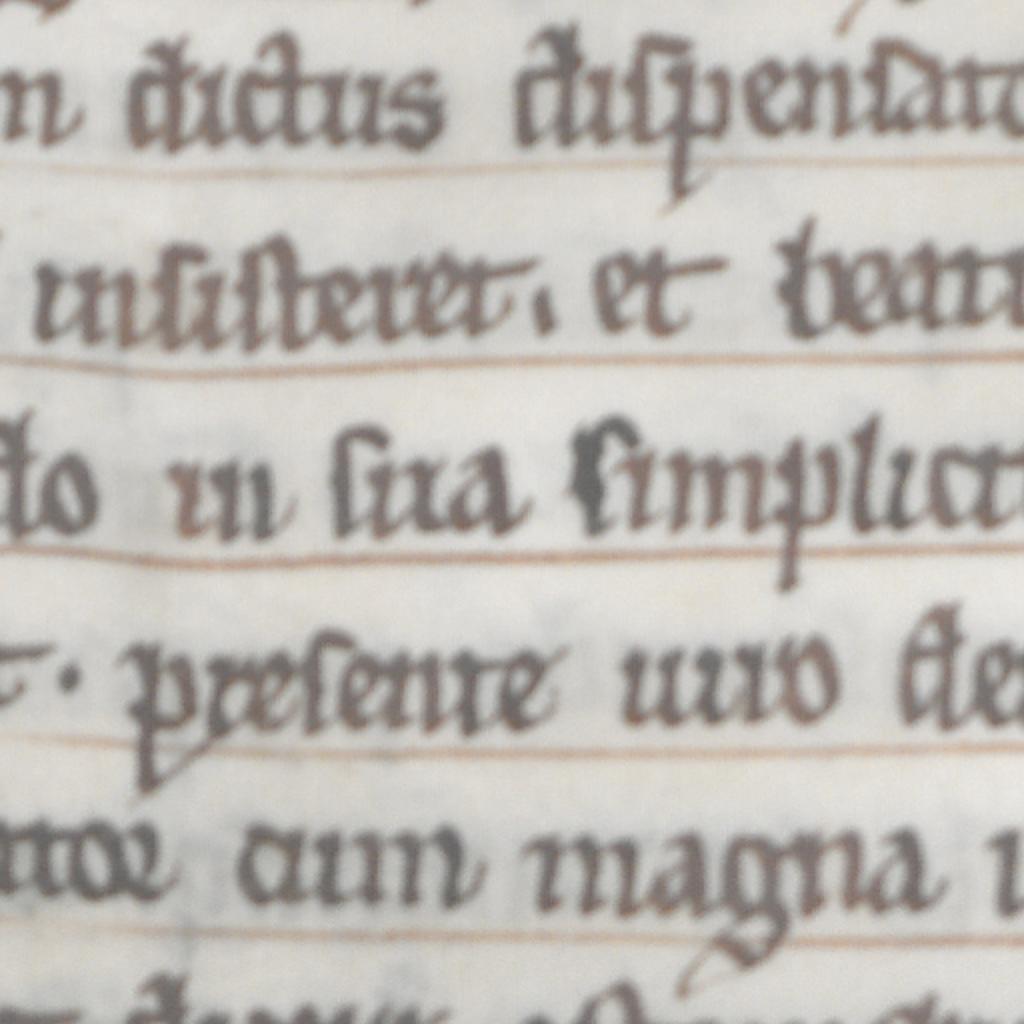 dictus dispensato
insisteret. et beati
do in sua simplicit
presente uiro de
ator cum magna